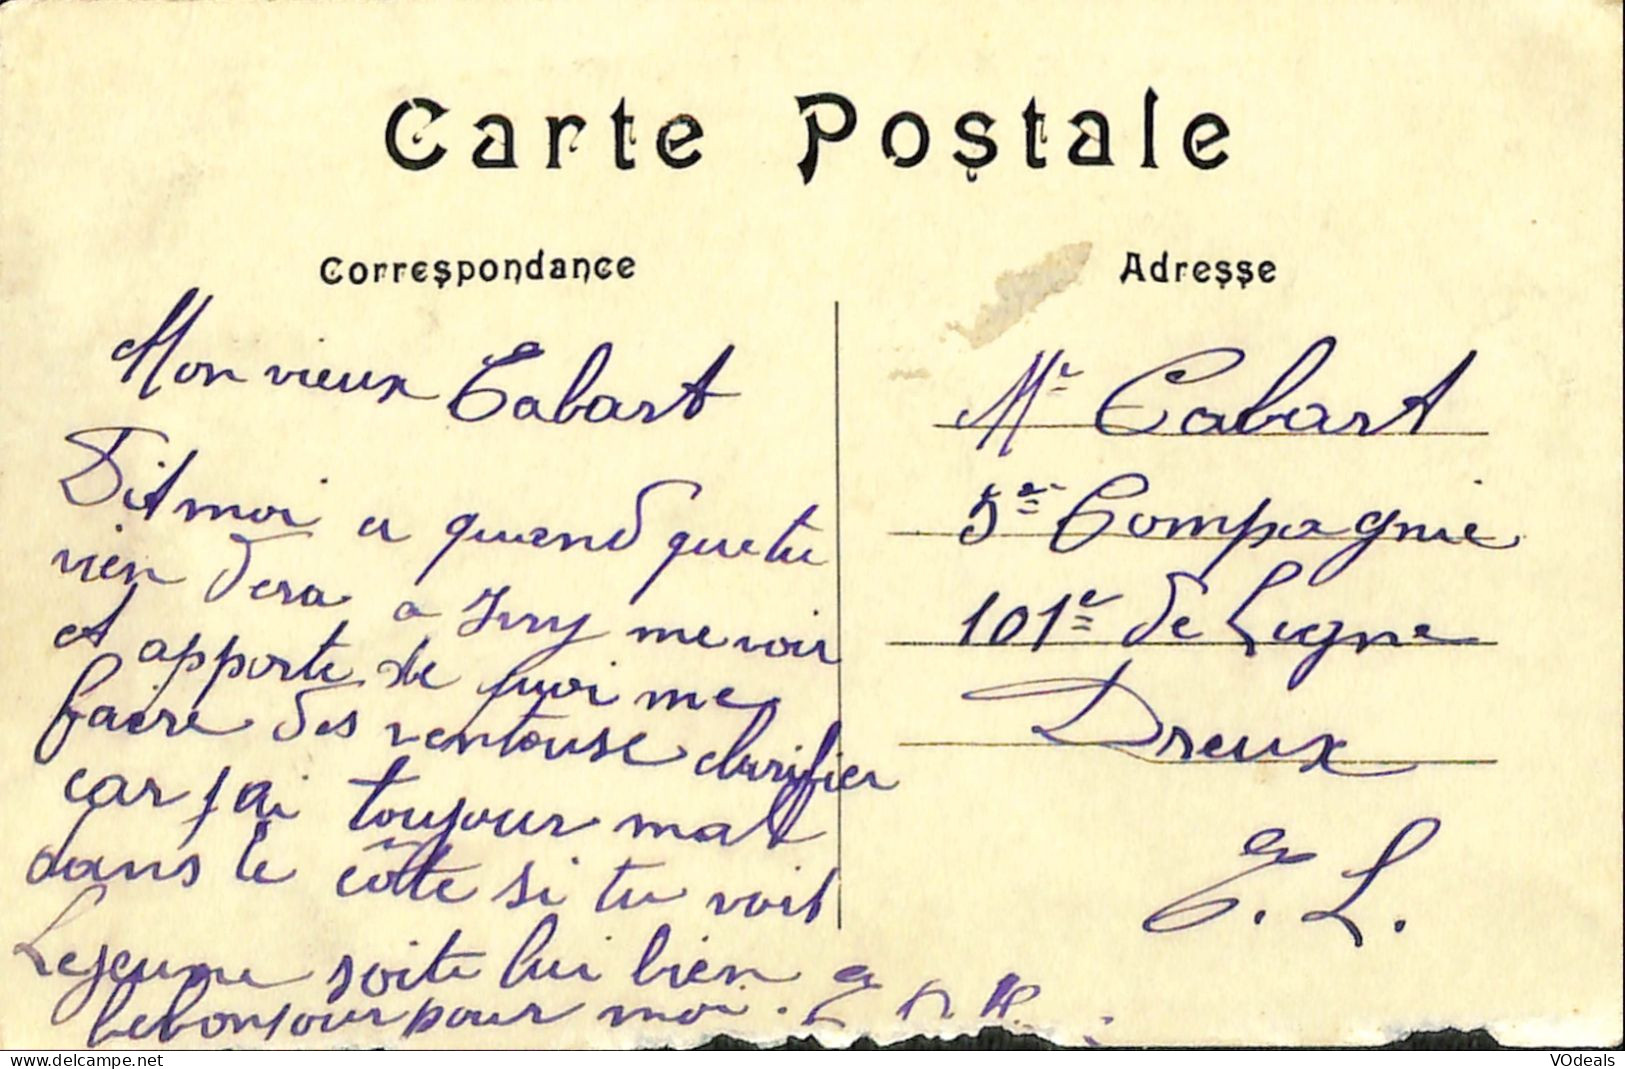 Carte Postale
Correspondance
Mon vieux Cabart
Dit moi a quand que tu
vien dera a Ivry me voir
et apporte de quoi me
faire des ventouse clarifier
car j'ai toujour mal
dans le côte si tu voit
Lejeune soite lui bien
le bonjour pour moi.
Adresse
Mr Cabart
5e Compagnie
101e de Ligne
Dreux
E. L.
VOdeals
www.delcampe.net